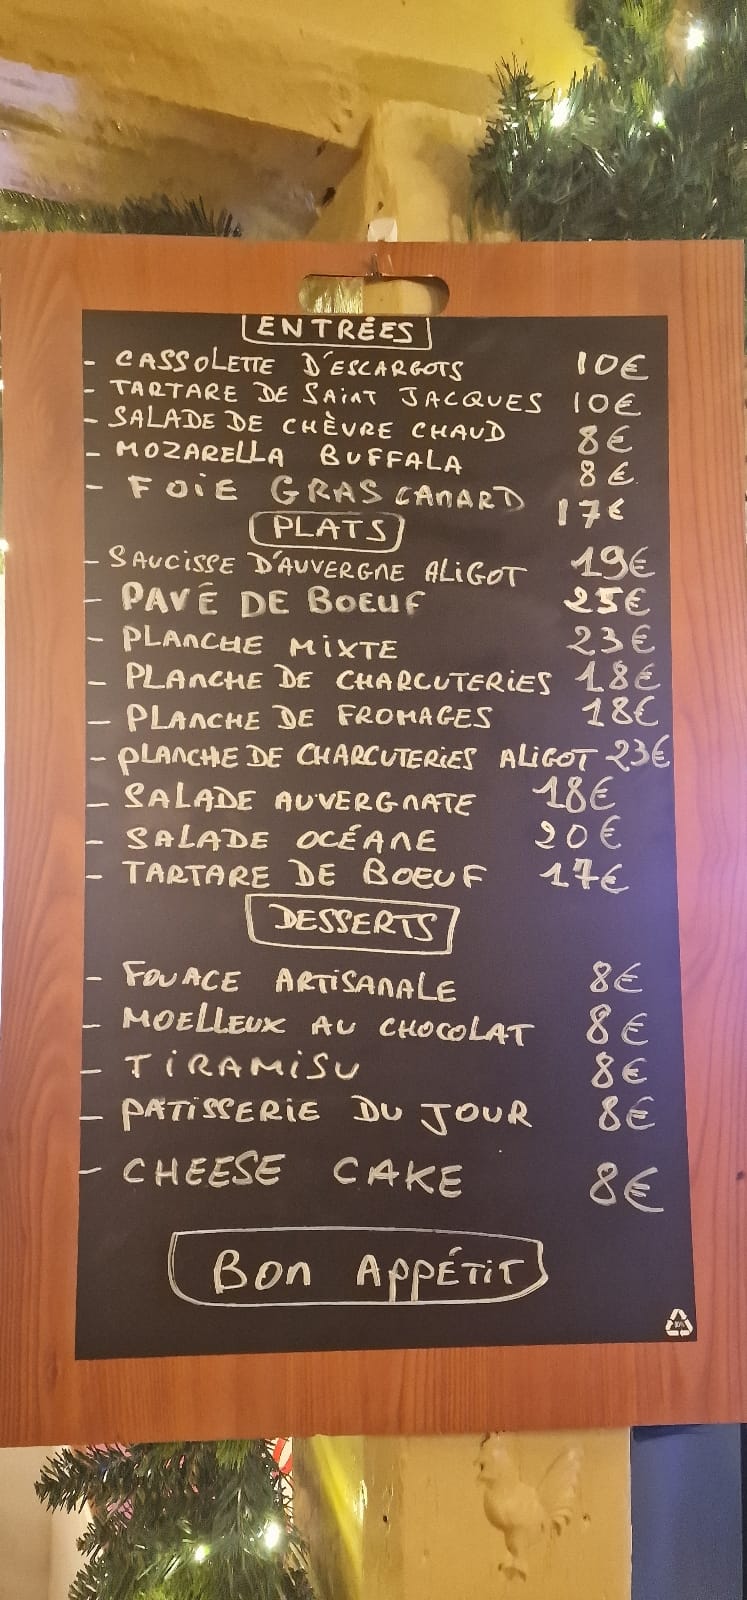 ENTRÉES
- CASSOLETTE D'ESCARGOTS 10€
- TARTARE DE SAiNT JACQUES 10€
- SALADE DE CHÈVRE CHAUD 8€
- MOZARELLA BUFFALA 8€
- FOiE GRAS CANARD 17€
PLATS
- SAUCiSSE D'AUVERGNE ALiGOT 19€
- PAVÉ DE BOEUF 25€
- PLANCHE MiXTE 23€
- PLANCHE DE CHARCUTERiES 18€
- PLANCHE DE FROMAGES 18€
- PLANCHE DE CHARCUTERiES ALiGOT 23€
- SALADE AUVERGNATE 18€
- SALADE OCÉANE 20€
- TARTARE DE BOEUF 17€
DESSERTS
- FOUACE ARTiSANALE 8€
- MOELLEUX AU CHOCOLAT 8€
- TiRAMiSU 8€
- PATiSSERiE DU JOUR 8€
- CHEESE CAKE 8€
BON APPÉTiT